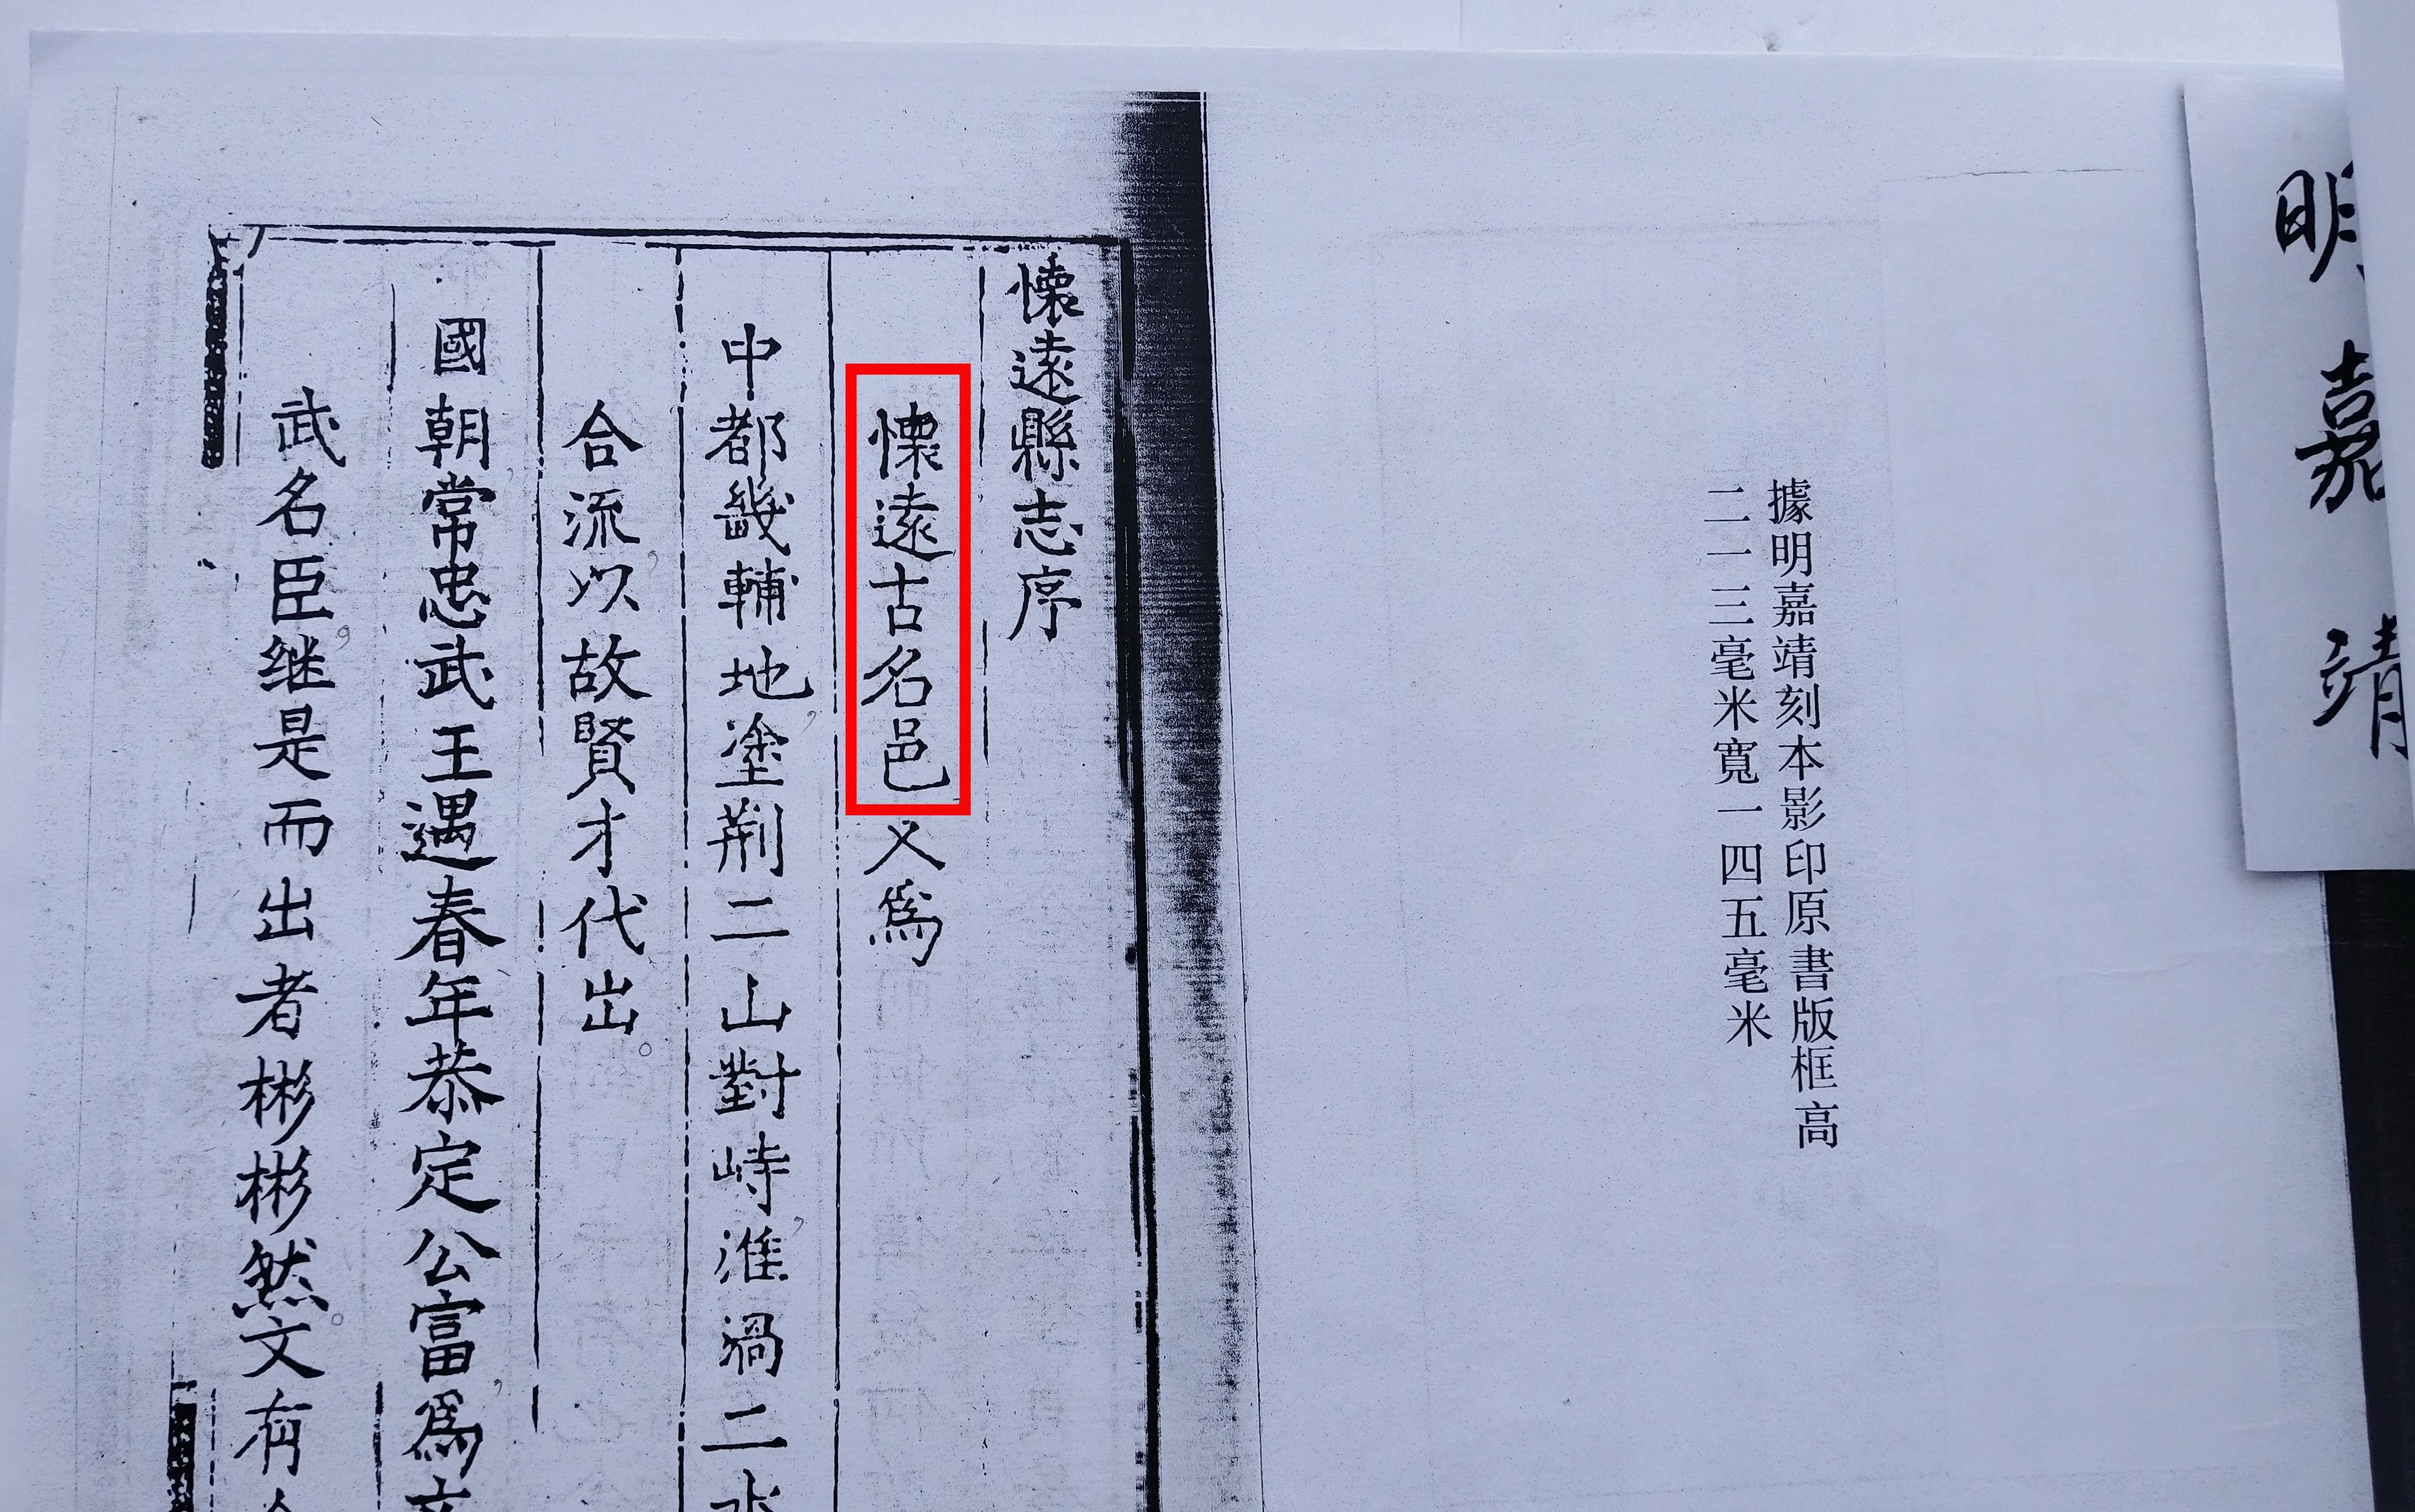 明嘉靖
據明嘉靖刻本影印原書版框高
二一三毫米寬一四五毫米
懷遠縣志序
懷遠古名邑又爲
中都畿輔地塗荆二山對峙淮渦二水
合流以故賢才代出
國朝常忠武王遇春年恭定公富爲文
武名臣继是而出者彬彬然文有